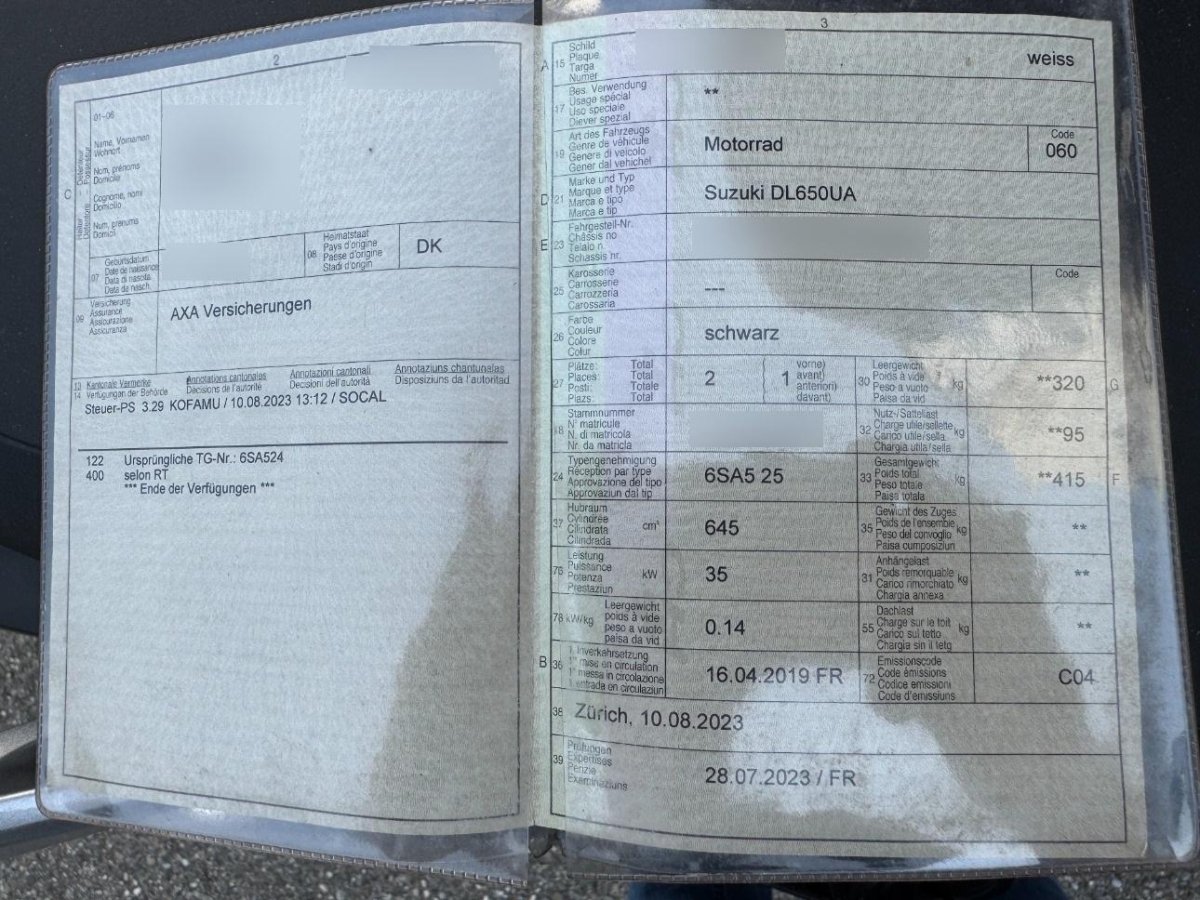 2
01-06
Name, Vornamen
Wohnort
Nom, prénoms
Domicile
Cognome, nomi
Domicilio
Num, prenums
Domicil
C
07
Geburtsdatum
Date de naissance
Data di nascita
Data da nasch.
08
Heimatstaat
Pays d'origine
Paese d'origine
Stadi d'origin
DK
09
Versicherung
Assurance
Assicurazione
Assicuranza
AXA Versicherungen
13
14
Kantonale Vermerke
Verfügungen der Behörde
Annotations cantonales
Décisions de l'autorité
Annotazioni cantonali
Decisioni dell'autorità
Annotaziuns chantunalas
Disposiziuns da l'autoritad
Steuer-PS 3.29 KOFAMU / 10.08.2023 13:12 / SOCAL
122 Ursprüngliche TG-Nr.: 6SA524
400 selon RT
*** Ende der Verfügungen ***
3
A
15
Schild
Plaque
Targa
Numer
weiss
17
Bes. Verwendung
Usage spécial
Uso speciale
Diever spezial
**
19
Art des Fahrzeugs
Genre de véhicule
Genere di veicolo
Gener dal vehichel
Motorrad
Code
060
D
21
Marke und Typ
Marque et type
Marca e tipo
Marca e tip
Suzuki DL650UA
E
23
Fahrgestell-Nr.
Châssis no
Telaio n.
Schassis nr.
25
Karosserie
Carrosserie
Carrozzeria
Carossaria
---
Code
26
Farbe
Couleur
Colore
Colur
schwarz
27
Plätze: Total
Places: Total
Posti: Totale
Plazs: Total
2
1
vorne)
avant)
anteriori)
davant)
30
Leergewicht
Poids à vide
Peso a vuoto
Paisa da vid
kg
**320
G
18
Stammnummer
N° matricule
N. di matricola
Nr. da matricla
32
Nutz-/Sattellast
Charge utile/sellette
Carico utile/sella
Chargia utila/sella
kg
**95
24
Typengenehmigung
Réception par type
Approvazione del tipo
Approvaziun dal tip
6SA5 25
33
Gesamtgewicht
Poids total
Peso totale
Paisa totala
kg
**415
F
37
Hubraum
Cylindrée
Cilindrata
Cilindrada
cm³
645
35
Gewicht des Zuges
Poids de l'ensemble
Peso del convoglio
Paisa cumposiziun
kg
**
76
Leistung
Puissance
Potenza
Prestaziun
kW
35
31
Anhängelast
Poids remorquable
Carico rimorchiato
Chargia annexa
kg
**
78
kW/kg
Leergewicht
poids à vide
peso a vuoto
paisa da vid
0.14
55
Dachlast
Charge sur le toit
Carico sul tetto
Chargia sin il tetg
kg
**
B
36
1. Inverkehrsetzung
1re mise en circulation
1a messa in circolazione
1. entrada en circulaziun
16.04.2019 FR
72
Emissionscode
Code émissions
Codice emissioni
Code d'emissiuns
C04
38
Zürich, 10.08.2023
39
Prüfungen
Expertises
Perizie
Examinaziuns
28.07.2023 / FR